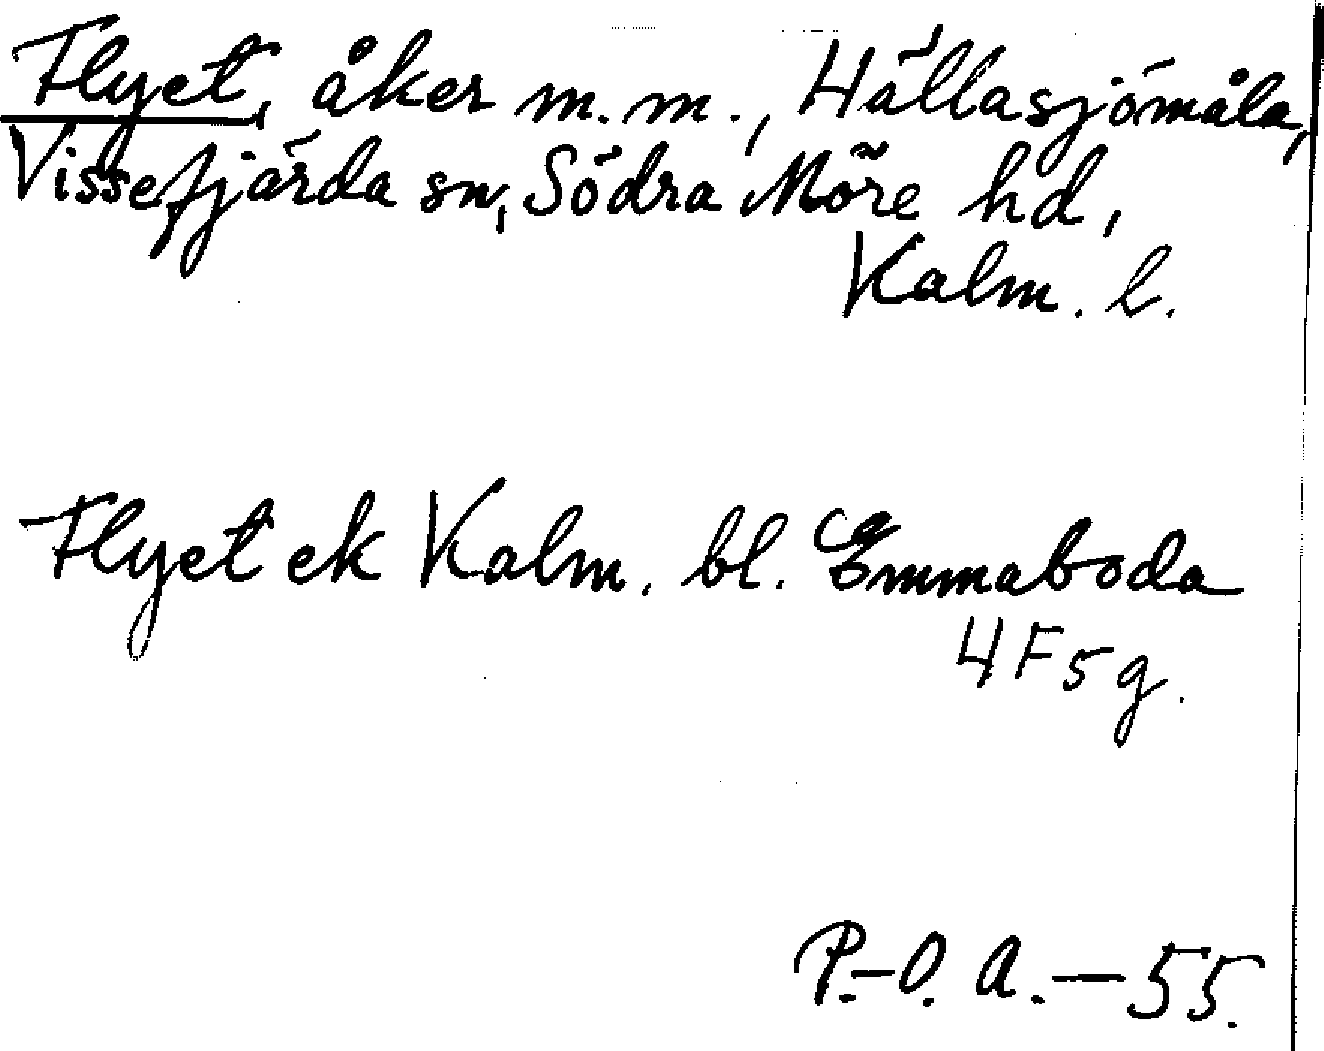 Flyet, åker m.m., Hällasjömåla,
Vissefjärda sn, Södra Möre hd,
Kalm. l.
Flyet ek Kalm. bl. Emmaboda
4F5g.
P.-O. A. - 55.